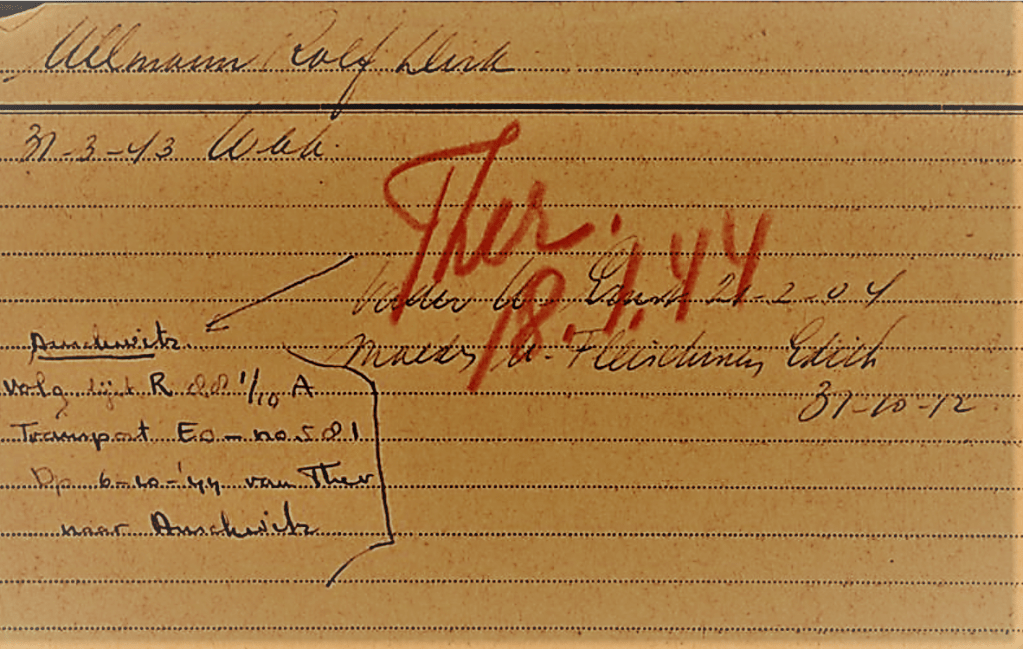 Ullmann Rolf Dirk
31-3-43 Wbk.
Ther.
18.1.44
Vader U. Ernst 21-2-04
Moeder U. Fleischmann Edith
31-10-12
Auschwitz.
volg. lijst R 88 1/10 A
Transport Eo - no 581
Op 6-10-'44 van Ther
naar Auschwitz